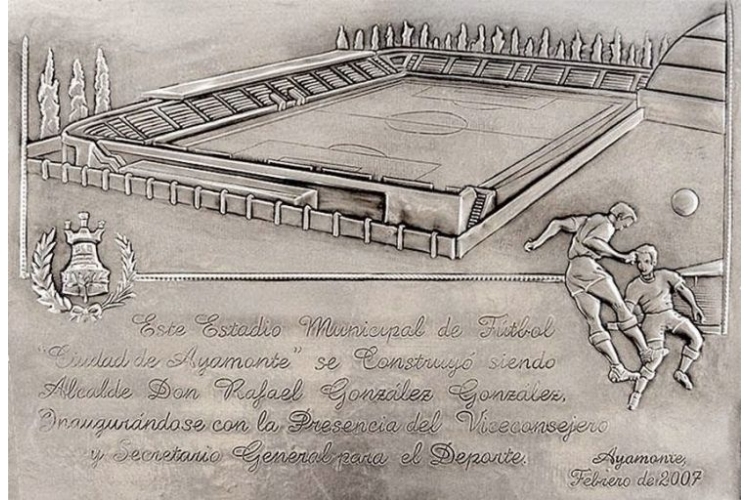 Este Estadio Municipal de Fútbol
"Ciudad de Ayamonte" se Construyó siendo
Alcalde Don Rafael González González,
Inaugurándose con la Presencia del Viceconsejero
y Secretario General para el Deporte.
Ayamonte,
Febrero de 2007